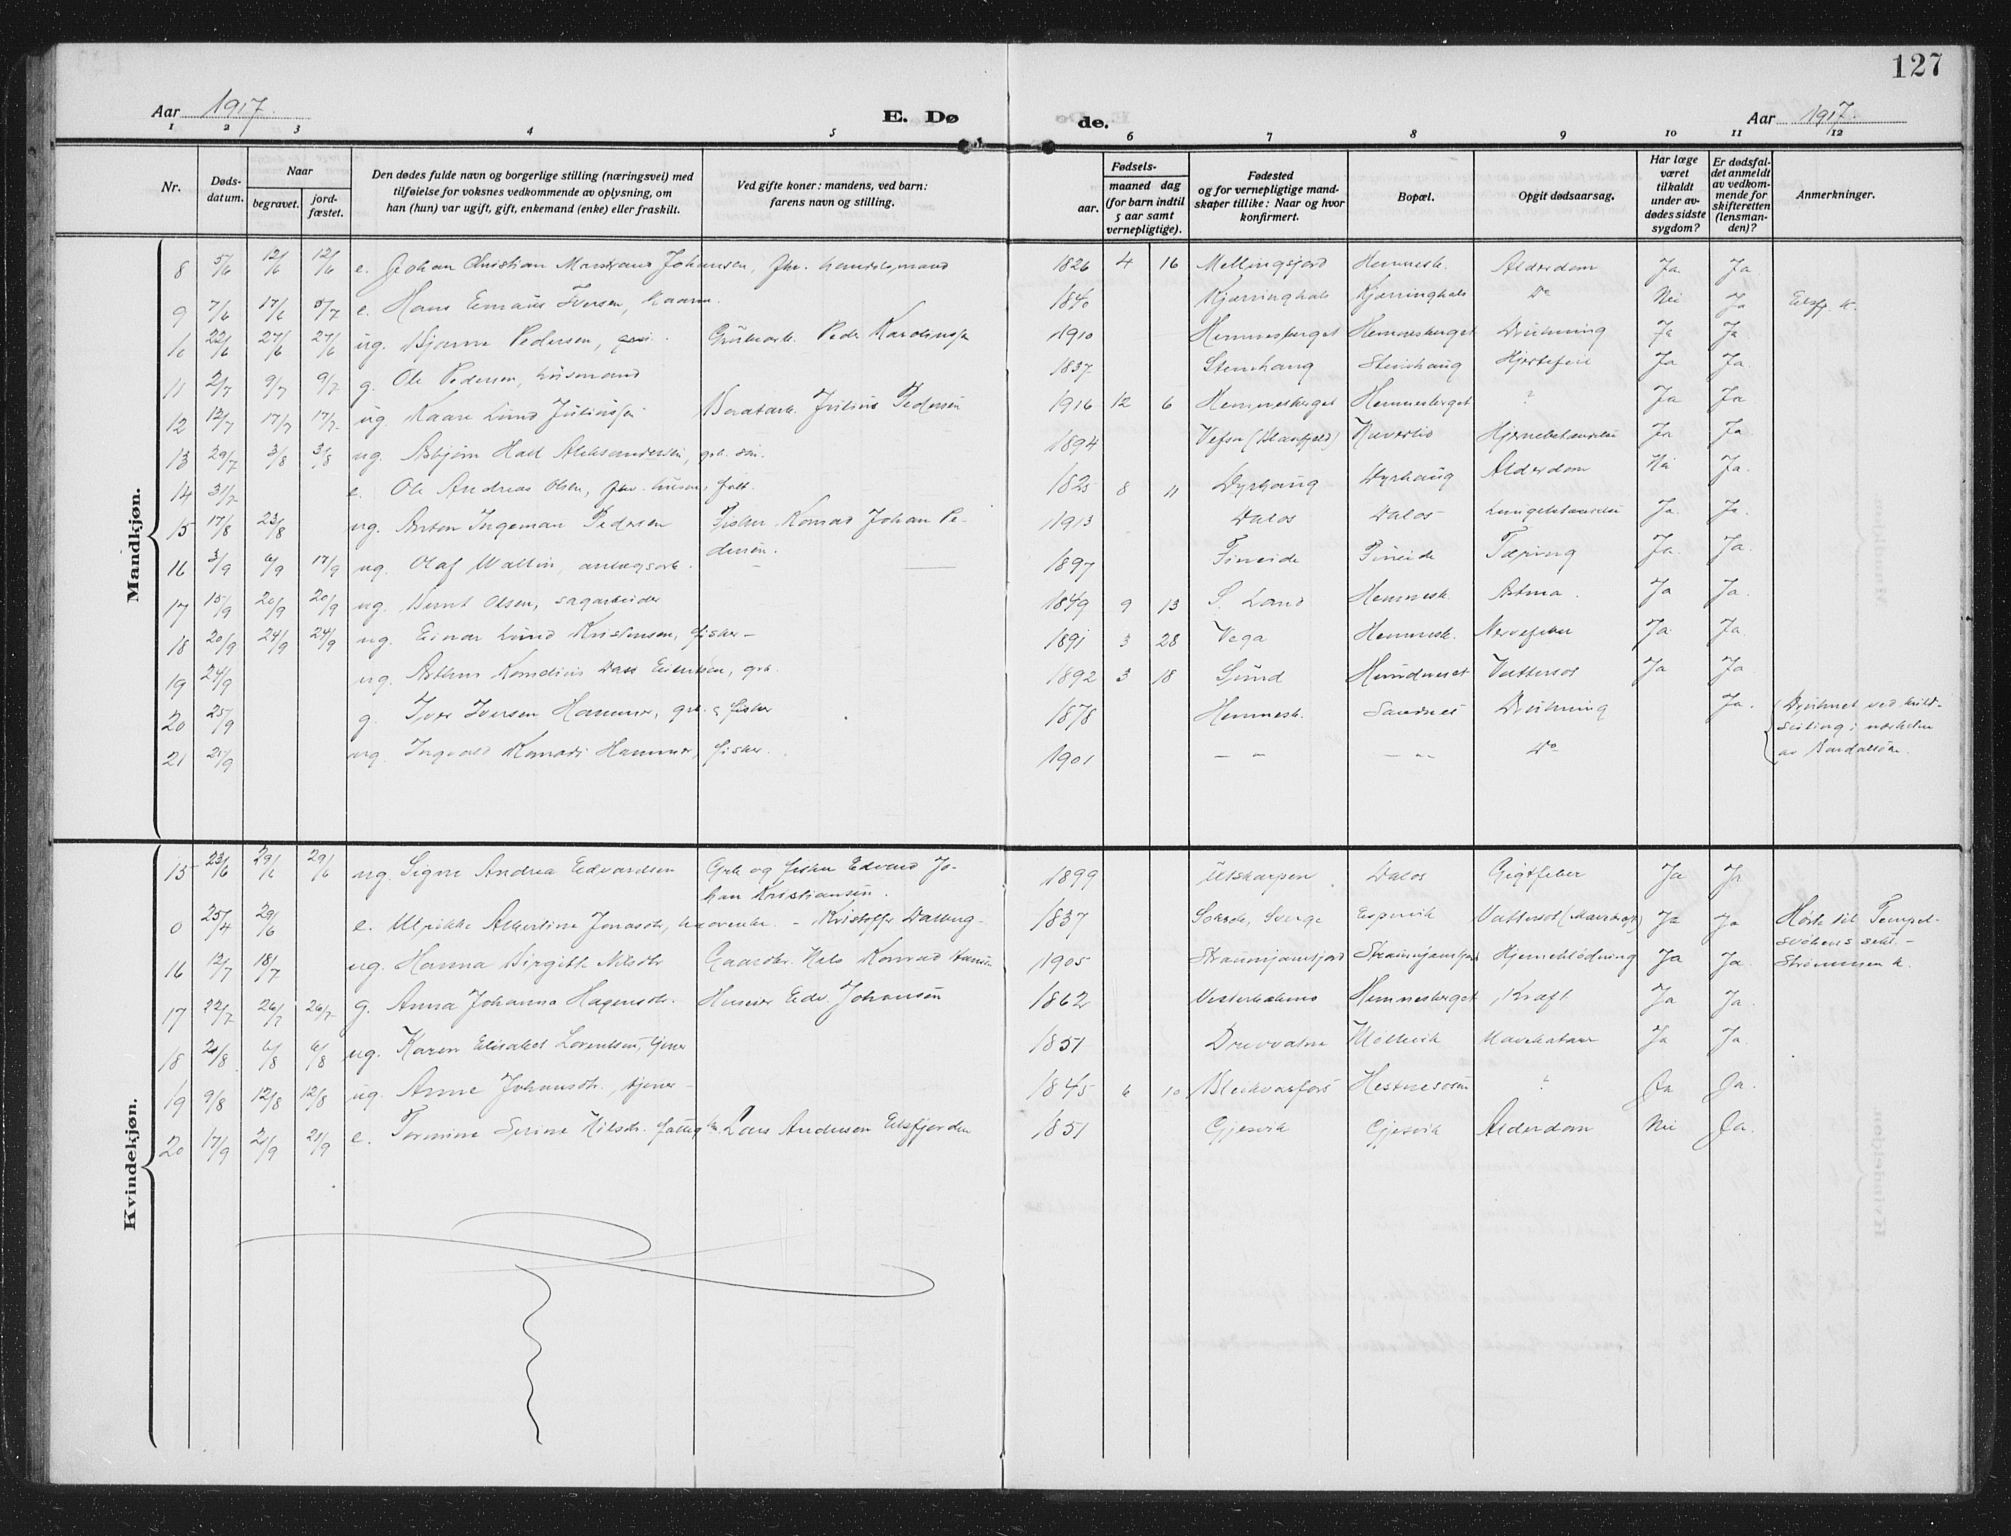 127
Aar 1917.
E. Dø
de.
Aar 1917.
1 2 3 4 5 6 7 8 9 10 11 12
Nr.
Døds-
datum.
Naar
begravet.
jord-
fæstet.
Den dødes fulde navn og borgerlige stilling (næringsvei) med
tilføielse for voksnes vedkommende av oplysning, om
han (hun) var ugift, gift, enkemand (enke) eller fraskilt.
Ved gifte koner: mandens, ved barn:
farens navn og stilling.
Fødsels-
aar.
maaned dag
(for barn indtil
5 aar samt
vernepligtige).
Fødested
og for vernepligtige mand-
skaper tillike: Naar og hvor
konfirmert.
Bopæl.
Opgit dødsaarsag.
Har læge
været
tilkaldt
under av-
dødes sidste
sygdom?
Er dødsfal-
det anmeldt
av vedkom-
mende for
skifteretten
(lensman-
den)?
Anmerkninger.
Mandkjøn.
8 5/6 12/6 12/6 e. Johan Christian Johansen, fhv. handelsmand 1826 4 16 Mellingsjord Hemnesb. Alderdom Ja Ja
9 7/6 17/6 5/7 e. Hans Emaus Iversen, 1840 Kjærringhals Kjærringhals Do Nei Ja Elsfj. k.
10 22/6 27/6 27/6 ug. Bjarne Pedersen, Peder 1910 Hemnesberget Hemnesberget Drukning Ja Ja
11 2/7 9/7 9/7 g. Ole Pedersen, husmand 1837 Stenhaug Stenhaug Hjertefeil Ja Ja
12 12/7 17/7 17/7 ug. Kaare Lund Juliussen Julius Pedersen 1916 12 6 Hemnesberget Hemnesberget ? Ja Ja
13 29/7 3/8 3/8 ug. Asbjørn Aleksandersen, grb. søn. 1894 Vefsn Hjernebetændelse Ja Ja.
14 31/7 e. Ole Andreas Olsen, fhv. husm., fatt. 1825 8 11 Dyrhaug Dyrhaug Alderdom Nei Ja.
15 17/8 23/8 ug. Anton Ingeman Pedersen Fisker Konrad Johan Pe-
dersen. 1913 Dalos Dalos Lungebetændelse Ja. Ja.
16 3/9 6/9 17/9 ug. Olaf Wallin, anlægsarb. — 1897 Fineide Fineide Tæring Ja. Ja.
17 15/9 20/9 20/9 ug. Bernt Olsen, sagarbeider 1849 9 13 S. Land Hemnesb. Astma. Ja Ja.
18 20/9 24/9 24/9 ug. Einar Lund Kristensen, fisker — 1891 3 28 Vega Hemnesb. Nervefeber Ja Ja.
19 24/9 ug. Dass 1892 3 18 Sund Hundneset Vattersot Ja Ja
20 25/9 g. Iver Iversen Hammer, grb. & fisker 1878 Hemnesb. Sandnes Drukning Ja. (Druknet ved kuld-
seiling i nærheten
av
21 25/9 ug. Ingvald Konradi Hammer, fisker. 1901 — " — — " — Do
Kvindekjøn.
15 23/6 29/6 29/6 ug. Signe Andrea Edvardsen Grb. og fisker Edvard Jo-
han Kristiansen. 1899 Utskarpen Dalos Gigtfeber Ja Ja
0 25/4 29/6 e. Ulrikke Albertine Jonasdtr, — Kristoffer 1837 Sorsele, Sverge Espervik Vattersot Ja Ja Hørte til Tempel-
— Strømmen k.
16 12/7 18/7 ug. Hanna Birgitte Nilsdtr Gaardbr. Nils Konrad Hansen 1905 Hjerneblødning Ja Ja.
17 22/7 26/7 26/7 g. Anna Johanna Hagensdtr. Huseier Edv. Johansen 1862 Hemnesberget Kræft Ja Ja.
18 2/8 6/8 6/8 ug. Karen Elisabet Lorentsen, tjener 1851 Drevvatne Møllevik Mavekatarr Ja Ja.
19 9/8 12/8 12/8 ug. Anne Johansdtr. tjener — 1845 6 10 ? Ja Ja.
20 17/9 21/9 21/9 e. Serine Nilsdr. fattig Lars Andersen Elsfjorden 1851 Gjesvik Gjesvik Alderdom Nei Ja.